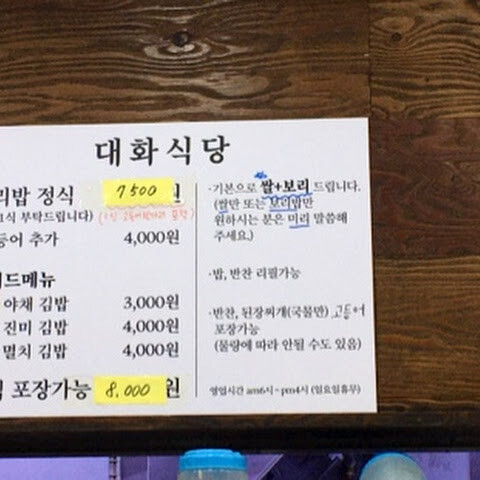 대화식당
리밥 정식 7500원
1식 부탁드립니다)
등어 추가 4,000원
드메뉴
야채 김밥 3,000원
진미 김밥 4,000원
멸치 김밥 4,000원
포장가능 8,000원
·기본으로 쌀+보리 드립니다.
(쌀만 또는 보리밥만
원하시는 분은 미리 말씀해
주세요.)
·밥, 반찬 리필가능
·반찬, 된장찌개(국물만) 고등어
포장가능
(물량에 따라 안될 수도 있음)
영업시간 am6시~pm4시 (일요일휴무)